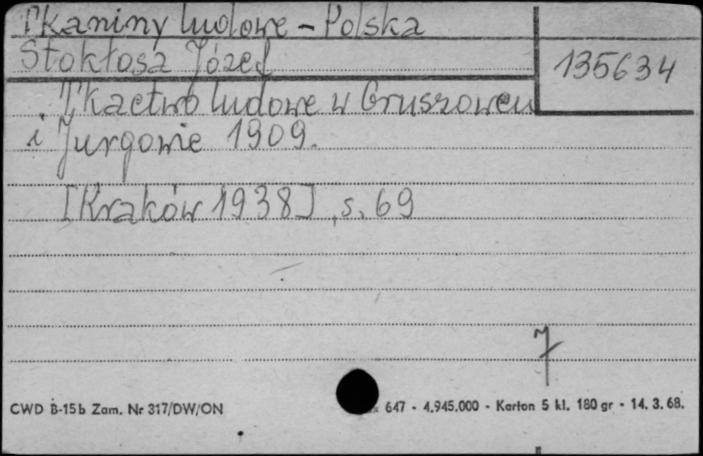 Tkaniny ludowe - Polska
Stokłosa Józef
135634
Tkactwo ludowe w Gruszowcu
i Jurgowie 1909.
[Kraków 1938], s. 69
7
CWD B-15b Zam. Nr 317/DW/ON
647 - 4.945.000 - Karton 5 kl. 180 gr - 14. 3. 68.